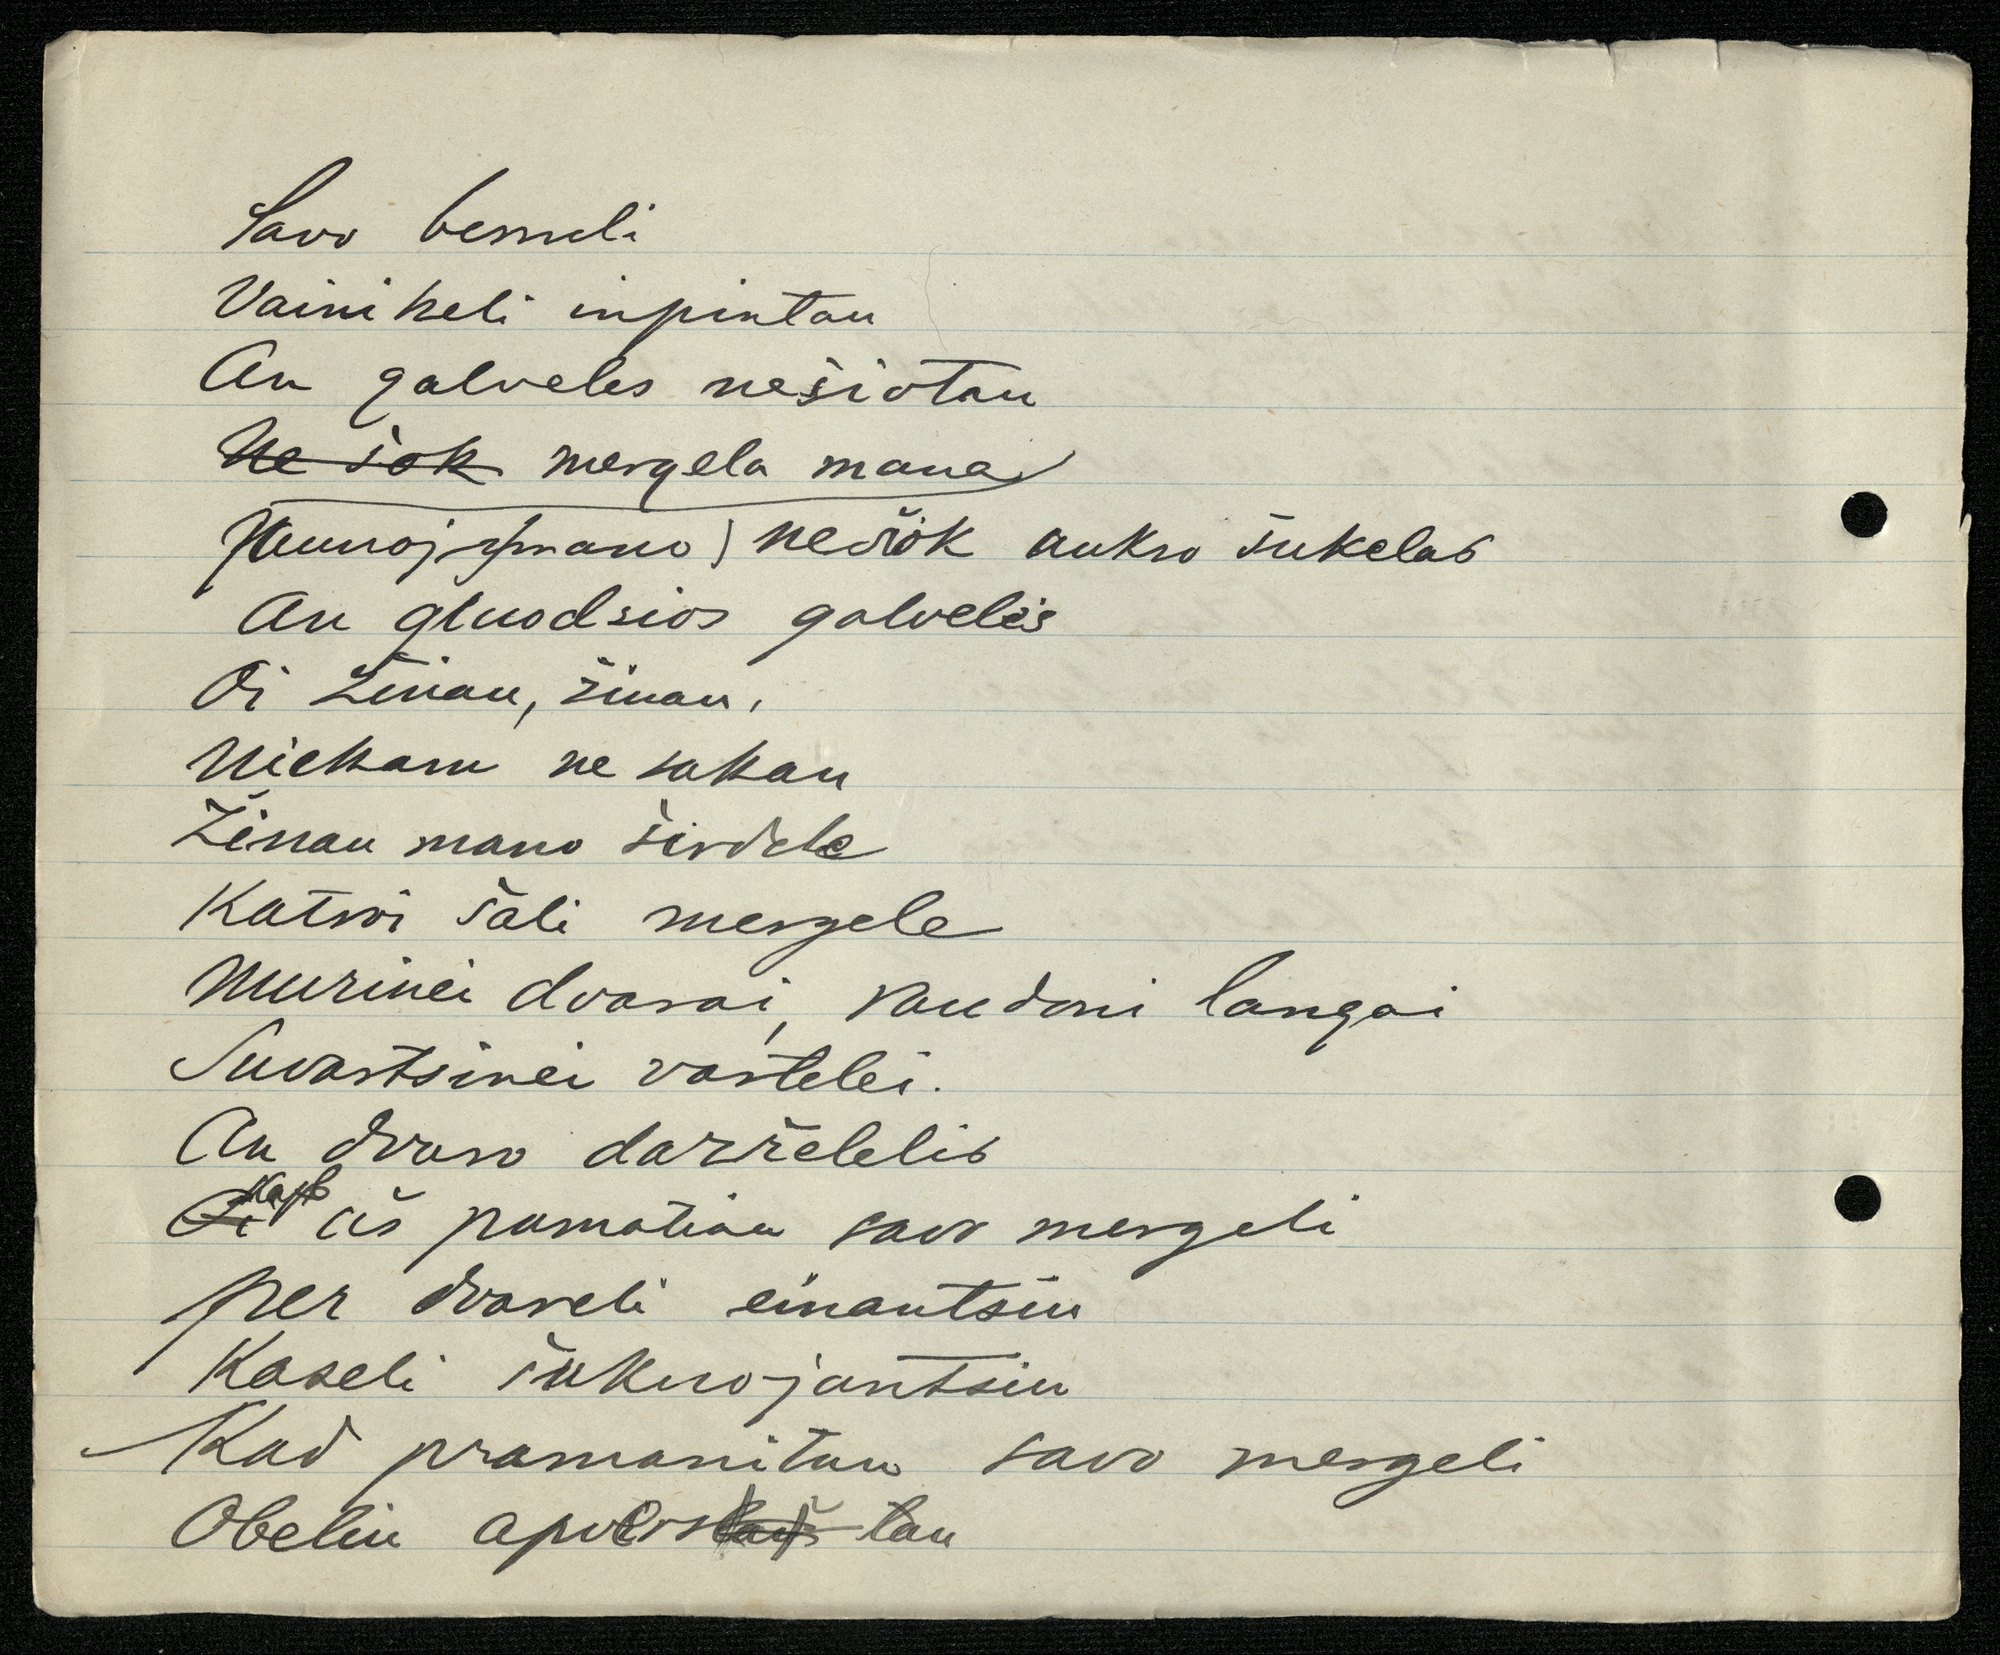 Savo berneli
Vainikeli inpintau
An galveles nešiotau
Ne šok mergela mana
mano) nešok aukso šukelas
An gluodsios galvelės
Oi žinau, žinau,
Niekam ne sakau
Žinau mano širdele
Katroi šali mergele
Murinei dvarai, raudoni langai
Suvartsinei vartelei.
An dvaro darželelis
Kap aš pamatiau savo mergeli
per dvareli einantsiu
Kaseli šukuojantsiu
Kad pramanitau savo mergeli
Obeliu apverstau